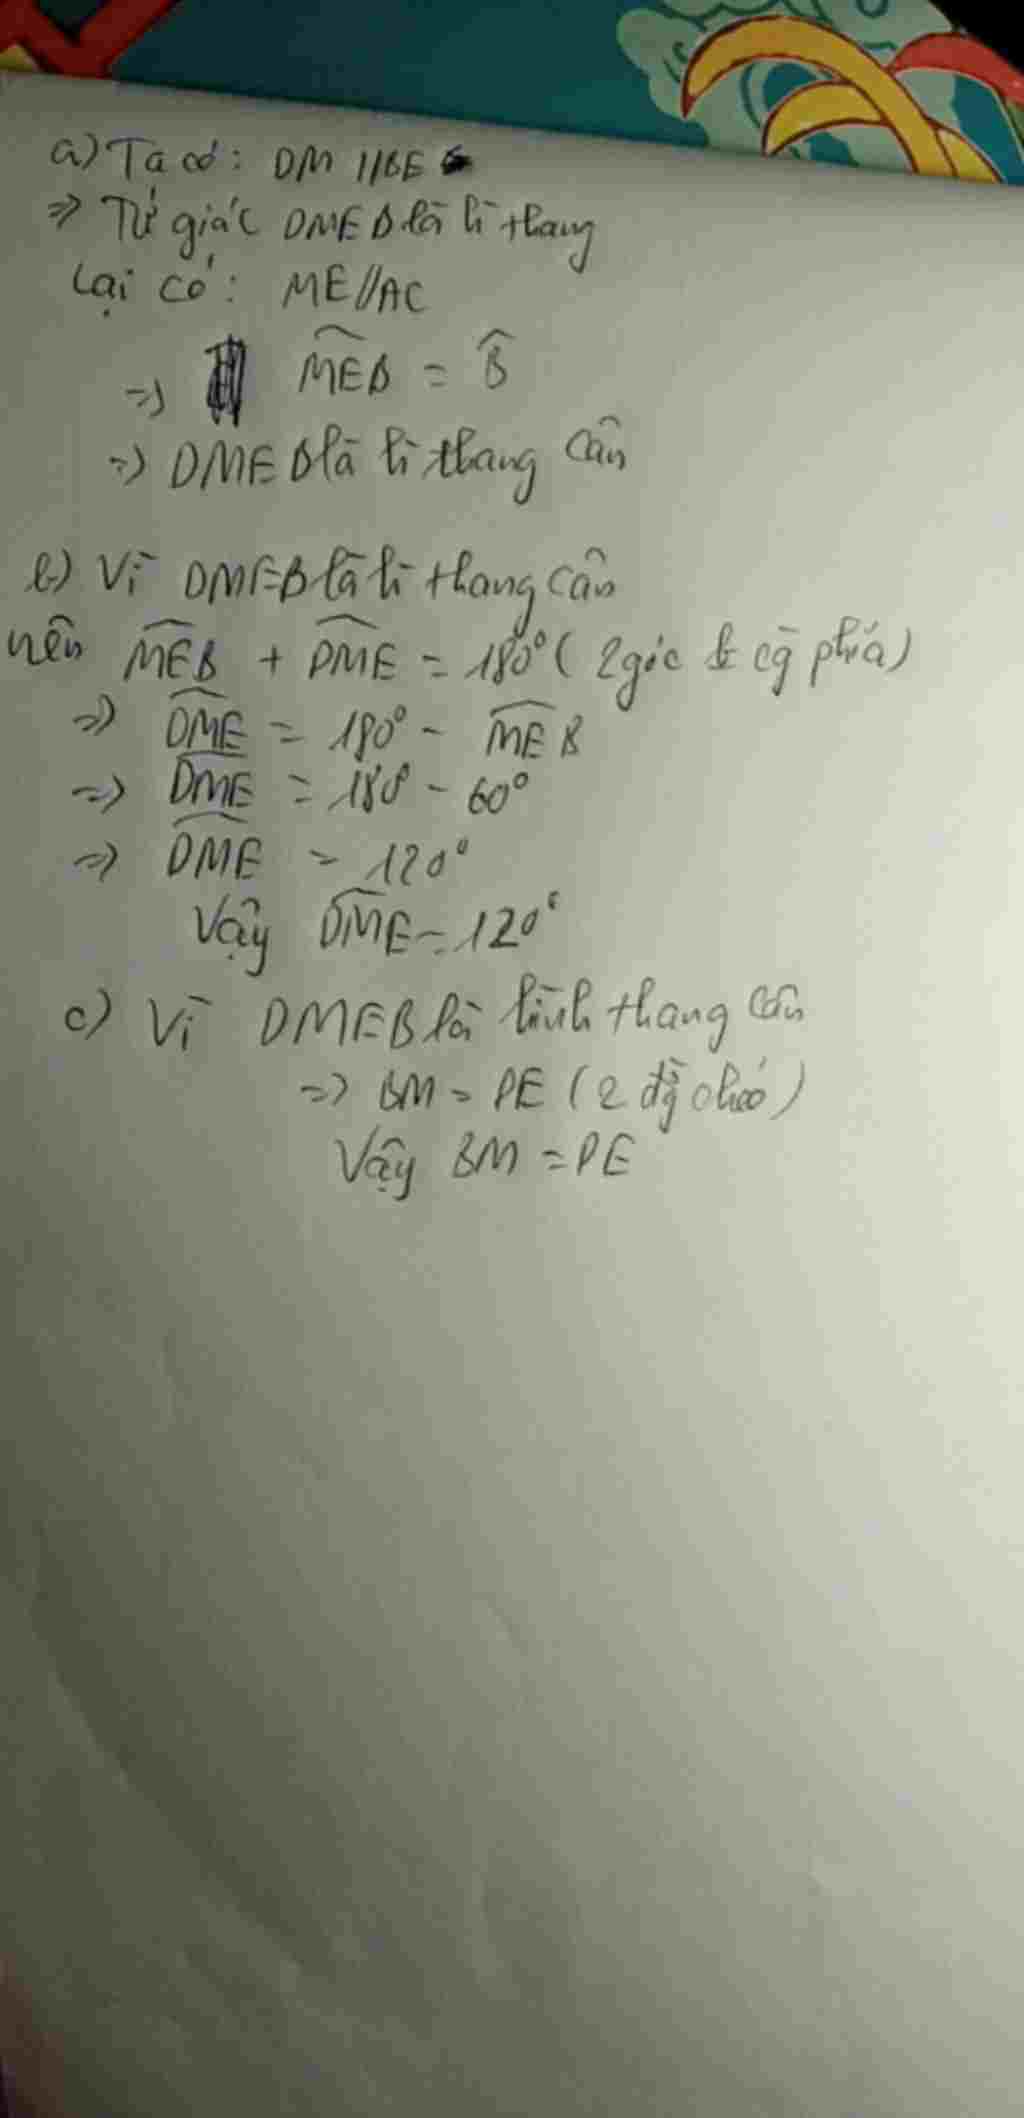 a) Ta có: DM // BE
=> Tứ giác DMEB là hì thang
Lại có: ME//AC
=> MEB = B
=> DMEB là hì thang cân
b) Vì DMEB là hì thang cân
nên MEB + DME = 180° ( 2 góc cg phía)
=> DME = 180° - MEB
=> DME = 180 - 60°
=> DME = 120°
Vậy DME = 120°
c) Vì DMEB là hình thang cân
=> BM = DE ( 2 đg chéo )
Vậy BM = DE